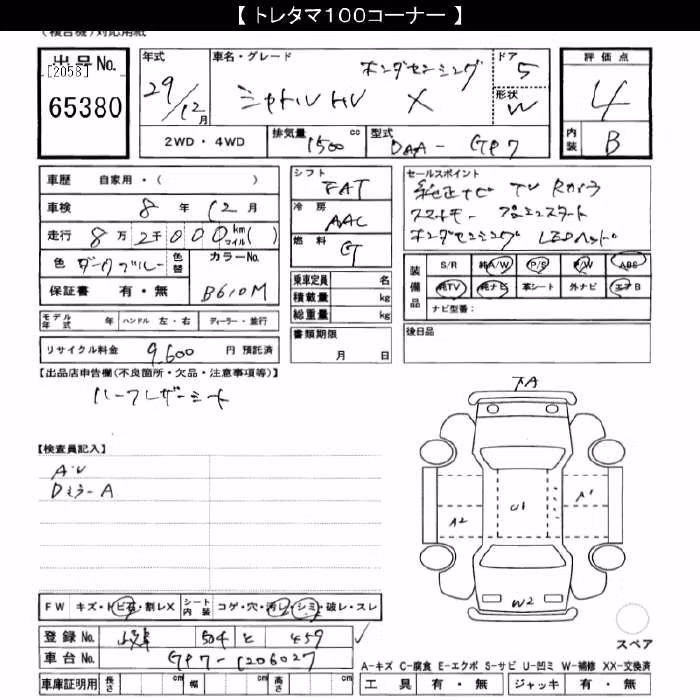 【 トレタマ100コーナー 】
(複合機)対応用紙
出品No. [2058] 65380
年式 29/12月
車名・グレード ホンダセンシング
シャトル HV X
ドア 5
形状 W
評価点 4
内装 B
2WD・4WD 排気量 1500 cc 型式 DAA- GP7
車歴 自家用・( )
車検 8年 12月
走行 8万2千000 km マイル( )
色 ダークブルー 色替 カラーNo.
保証書 有・無 B610M
モデル年式 年 ハンドル 左・右 ディーラー・並行
リサイクル料金 9,600 円 預託済
シフト FAT
冷房 AAC
燃料 G
乗車定員 名
積載量 kg
総重量 kg
書類期限
月 日
セールスポイント
純正ナビ TV Rカメラ
スマートキー プッシュスタート
ホンダセンシング LEDヘッド
装備品 S/R 純A/W P/S P/W ABS
純TV 純ナビ 革シート 外ナビ エアB
ナビ型番：
後日品
【出品店申告欄(不良箇所・欠品・注意事項等)】
ハーフレザーシート
【検査員記入】
A・U
Dミラー A
下A
A1
A2
U1
W2
スペア
FW キズ・トビ石・割レX シート内装 コゲ・穴・汚レ・シミ・破レ・スレ
登録No. 504 と 459
車台No. GP7-1206027
車庫証明用 長さ cm 幅 cm 高さ cm
A-キズ C-腐食 E-エクボ S-サビ U-凹ミ W-補修 XX-交換済
工具 有・無 ジャッキ 有・無